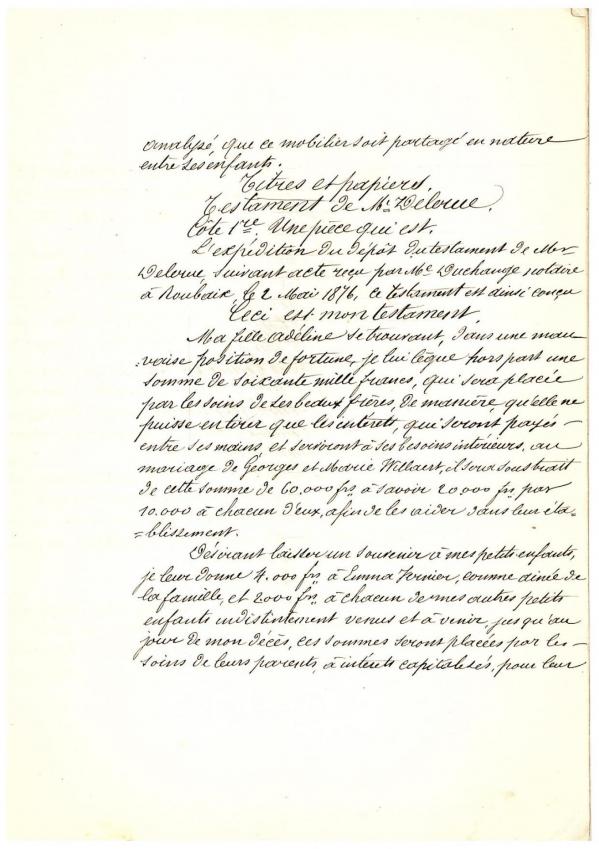 analysé, que ce mobilier soit partagé en nature
entre ses enfants.
Titres et papiers.
Testament de Mr Delerue.
Côte 1re. Une pièce qui est.
L'expédition du dépôt du testament de Mr
Delerue, suivant acte reçu par Me Duchange notaire
à Roubaix, le 2 Mai 1876, ce testament est ainsi conçu
Ceci est mon testament.
Ma fille Adéline se trouvant, dans une mau-
-vaise position de fortune, je lui lègue hors part une
somme de soixante mille francs, qui sera placée
par les soins de ses beaux frères, de manière, qu'elle ne
puisse en tirer que les intérêts, qui seront payés-
entre ses mains, et serviront à ses besoins intérieurs, au
mariage de Georges et Marie Willaert, il sera soustrait
de cette somme de 60,000 frs à savoir 20,000 frs par
10,000 à chacun d'eux, afin de les aider dans leur éta-
-blissement.
Désirant laisser un souvenir à mes petits enfants,
je leur donne 4.000 frs à Emma Vernier, comme ainée de
la famille, et 2000 frs à chacun de mes autres petits
enfants indistintement venus et à venir, jusqu'au
jour de mon décès, ces sommes seront placées par les-
soins de leurs parents, à intérêts capitalisés, pour leur